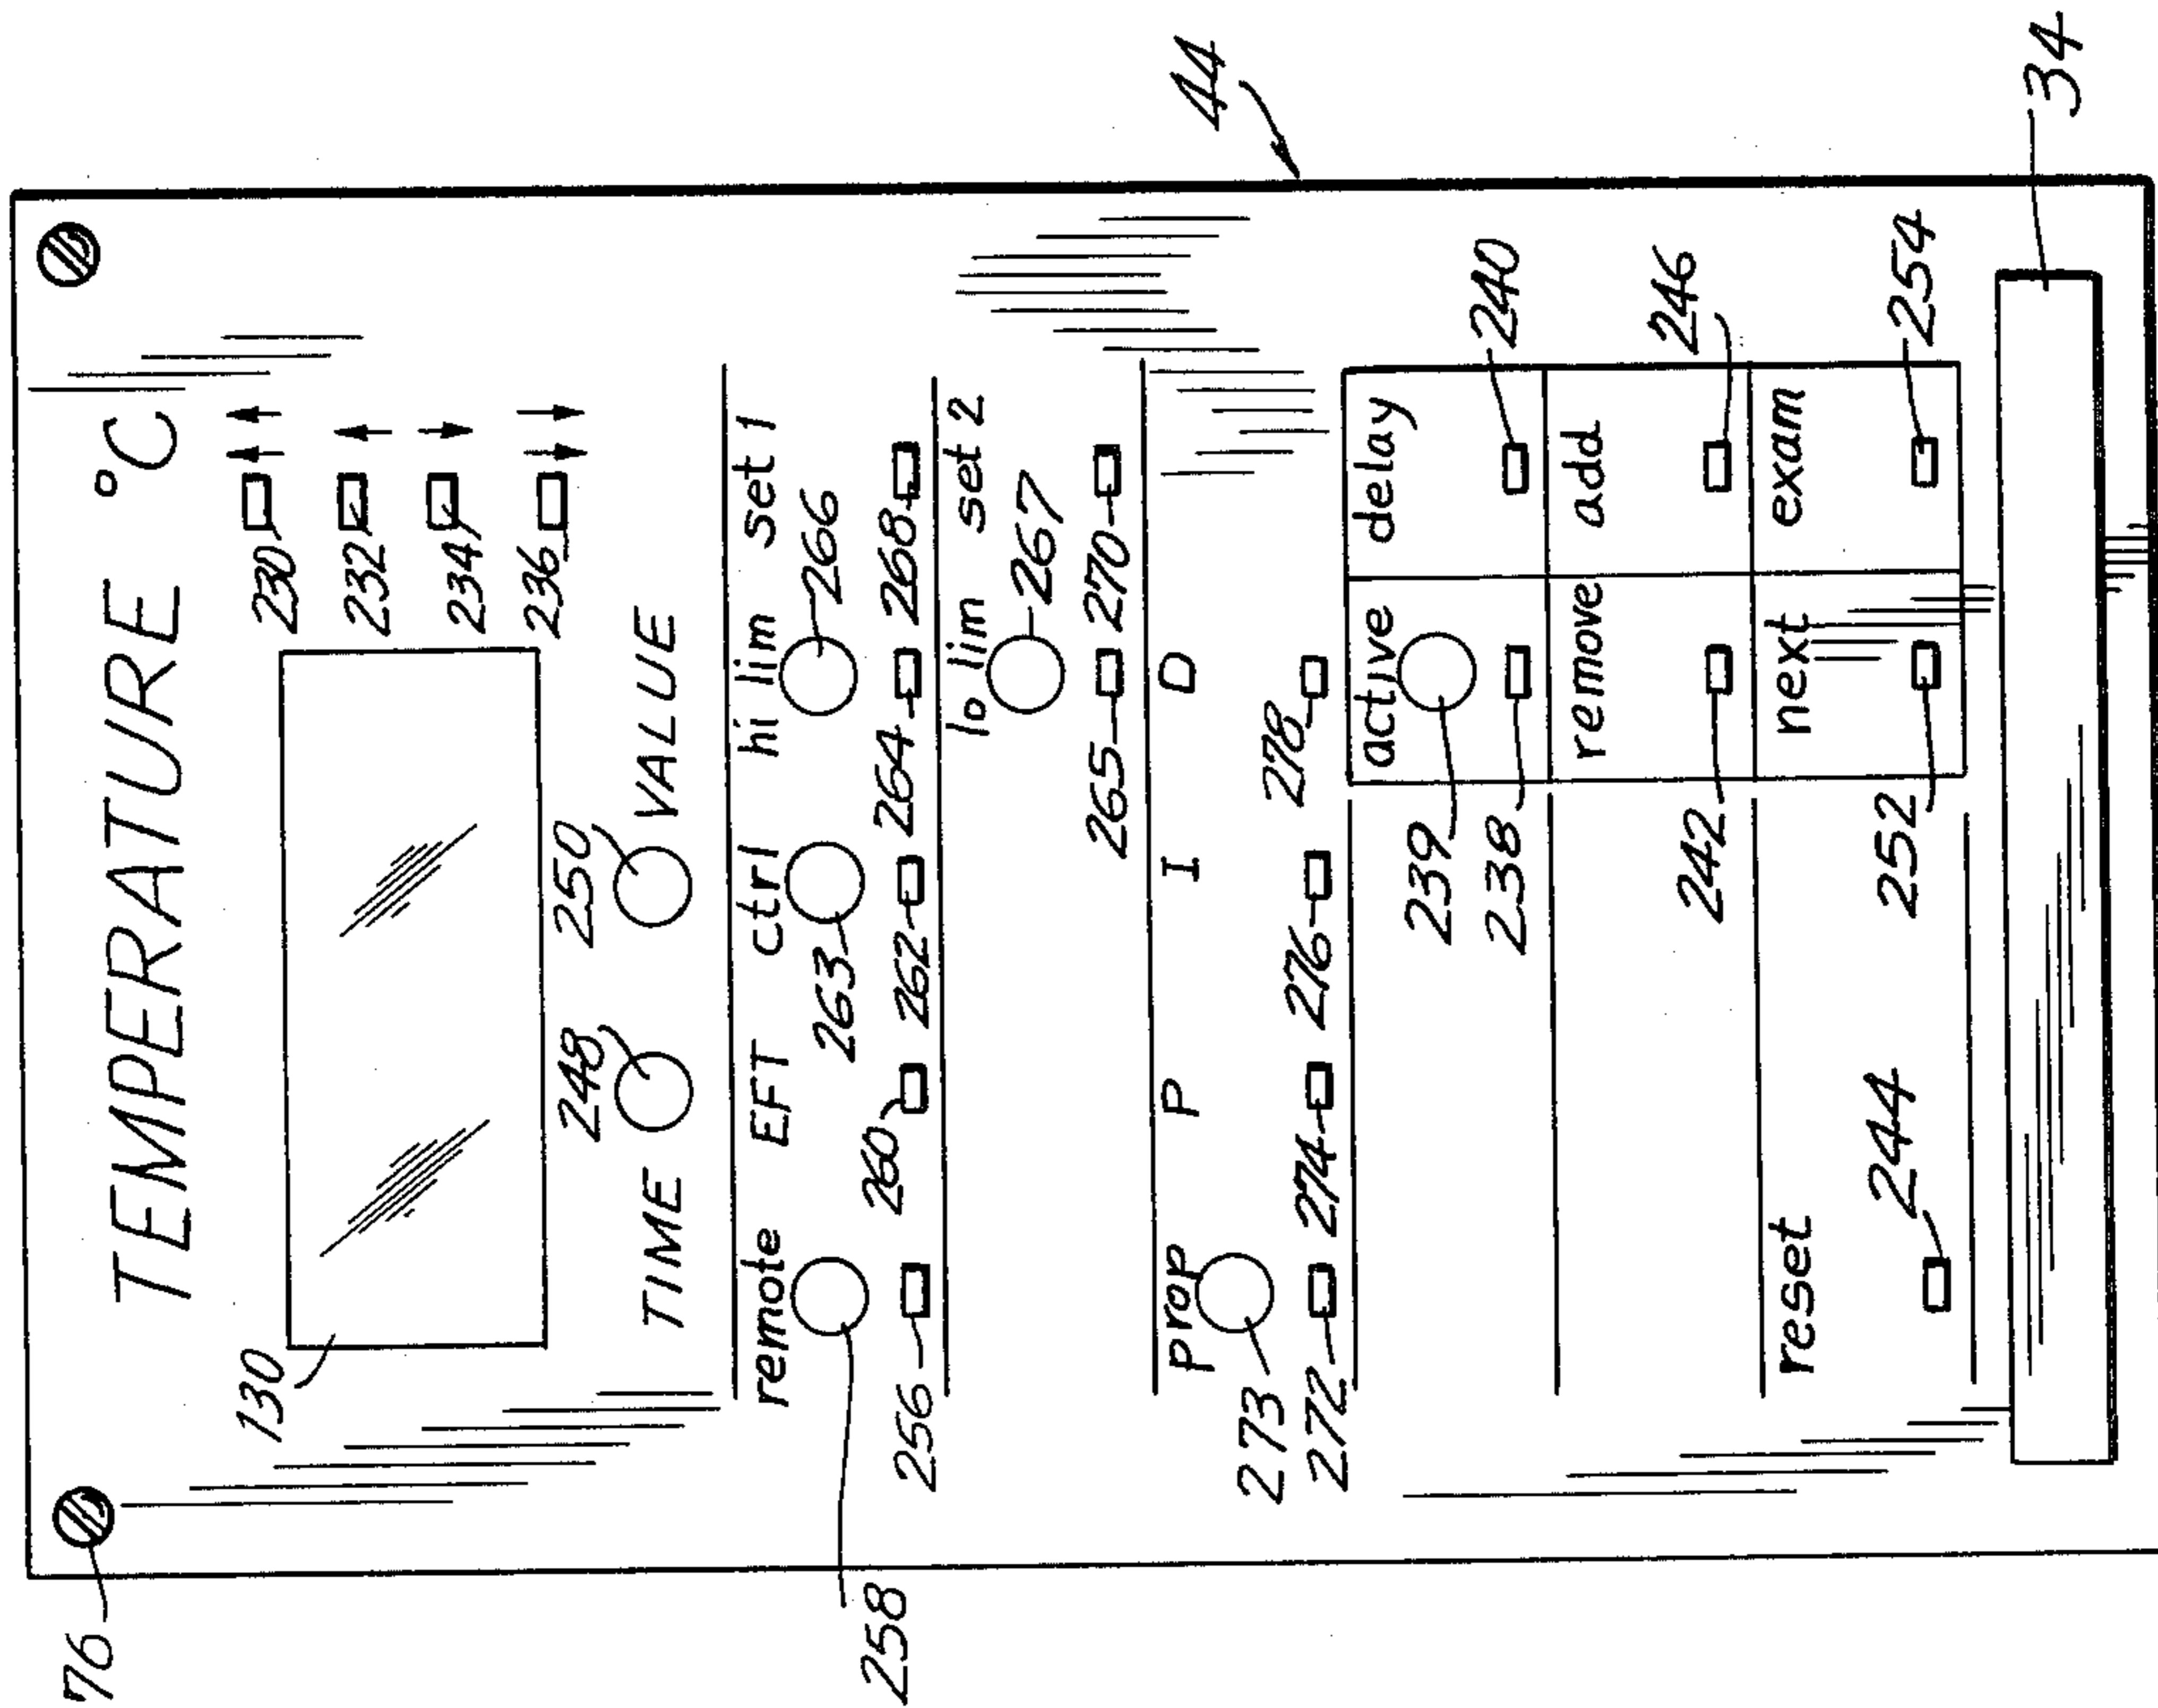 76
TEMPERATURE °C
130
230
232
234
236
44
248
250
TIME
VALUE
remote EFT ctrl hi lim set 1
258
263
266
256
260
262
264
268
lo lim set 2
267
265
270
prop P I D
273
272
274
276
278
active delay
239
238
240
remove add
242
246
reset next exam
244
252
254
34